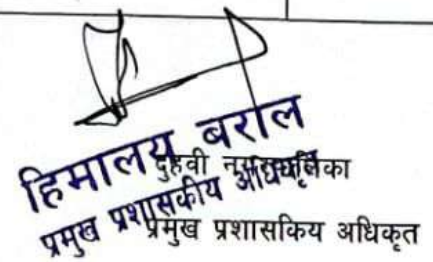 हिमालय बराल
प्रमुख प्रशासकीय अधिकृत
दुहवी नगरपालिका
प्रमुख प्रशासकिय अधिकृत